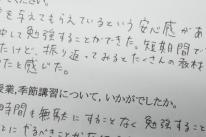 を与えてもらえているという安心感があ
中して勉強することができた。短期間で
たけど、振り返ってみるとたくさんの教材
たと感じた。
授業,季節講習について,いかがでしたか。
時間も無駄にすることなく勉強すること
にやるべきことが